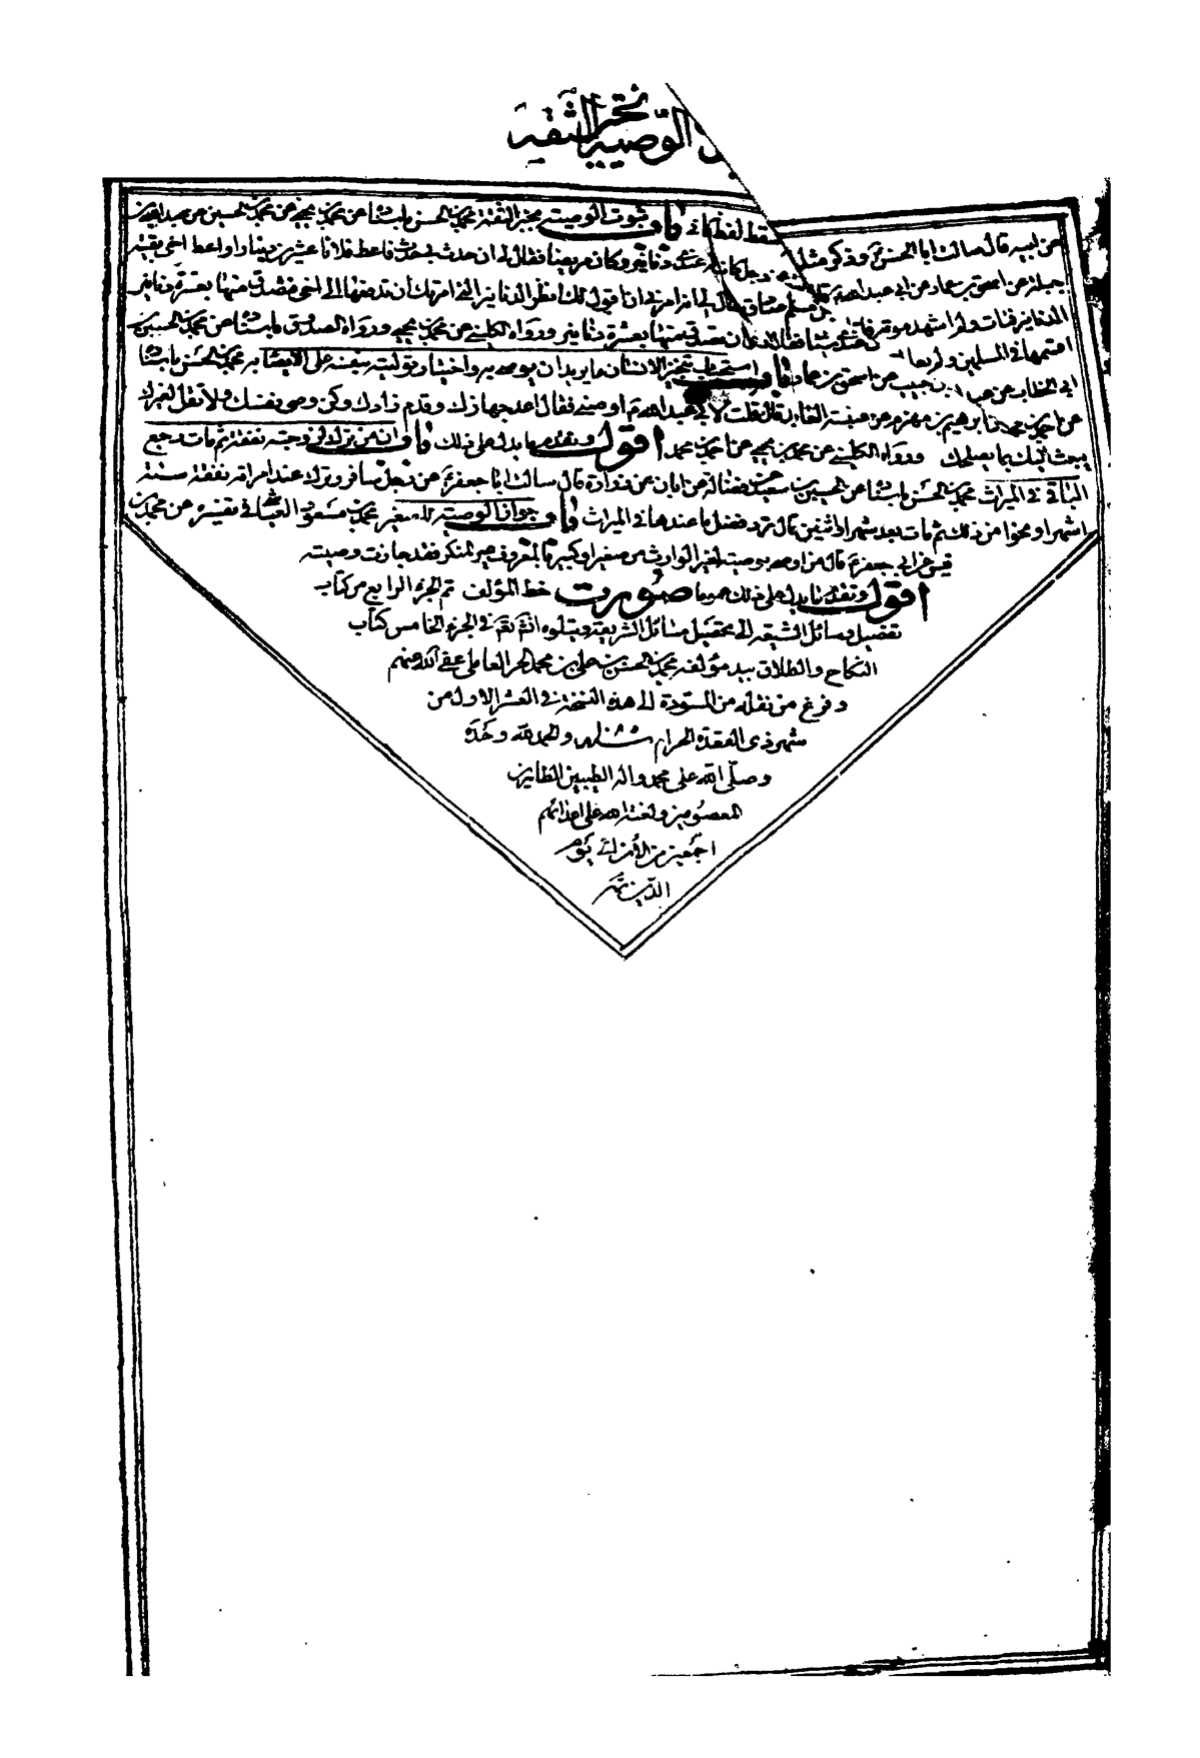 الوصية بخبر الثقة
عن ابيه قال سالت ابا الحسن ع وذكر مثله سقط لفظ كان في باب ثبوت الوصية بخبر الثقة محمد بن الحسن باسناده عن محمد بن يحيى عن محمد بن الحسين عن عبد الله بن
جبلة عن اسحق بن عمار عن ابي عبد الله ع قال سالته عن رجل كانت له عندي دنانير وكان مريضا فقال لي ان حدث بي حدث فاعط فلانا عشرين دينارا واعط اخي بقية
الدنانير فمات ولم اشهد موته فاتاني رجل مسلم صادق فقال لي انه امرني ان اقول لك انظر الدنانير التي امرتك ان تدفعها الى اخي فتصدق منها بعشرة دنانير
اقسمها في المسلمين ولم يعلم اخوه ان عندي شيئا فقال ارى ان تصدق منها بعشرة دنانير ورواه الكليني عن محمد بن يحيى ورواه الصدوق باسناده عن محمد بن الحسين بن
ابي الخطاب عن عبد الله بن حبيب عن اسحق بن عمار باب استحباب تنجيز الانسان ما يريد ان يوصي به واختيار توليته بنفسه على الايصاء به محمد بن الحسن باسناده
عن احمد بن محمد عن ابراهيم بن مهزم عن عنبسة العابد قال قلت لابي عبد الله ع اوصني فقال اعد جهازك وقدم زادك وكن وصي نفسك ولا تقل لغيرك
يبعث اليك بما يصلحك ورواه الكليني عن محمد بن يحيى عن احمد بن محمد اقول وتقدم ما يدل على ذلك باب ان من ترك لزوجته نفقة ثم مات رجع
الباقي في الميراث محمد بن الحسن باسناده عن الحسين بن سعيد عن فضالة عن ابان عن زرارة قال سالت ابا جعفر ع عن رجل سافر وترك عند امراته نفقة ستة
اشهر او نحوا من ذلك ثم مات بعد شهر او اثنين قال ترد فضل ما عندها في الميراث باب جواز الوصية للصغير محمد بن مسعود العياشي في تفسيره عن محمد بن
قيس عن ابي جعفر ع قال من اوصى بوصية لغير الوارث من صغير او كبير بالمعروف غير المنكر فقد جازت وصيته
اقول وتقدم ما يدل على ذلك عموما صورت خط المؤلف تم الجزء الرابع من كتاب
تفصيل وسائل الشيعة الى تحصيل مسائل الشريعة ويتلوه انشاء الله تعالى في الجزء الخامس كتاب
النكاح والطلاق بيد مؤلفه محمد بن الحسن بن علي بن محمد الحر العاملي عفى الله عنهم
وفرغ من نقله من المسودة الى هذه النسخة في العشر الاول من
شهر ذي القعدة الحرام والحمد لله وحده
وصلى الله على محمد واله الطيبين الطاهرين
المعصومين ولعنة الله على اعدائهم
اجمعين من الان الى يوم
الدين تم